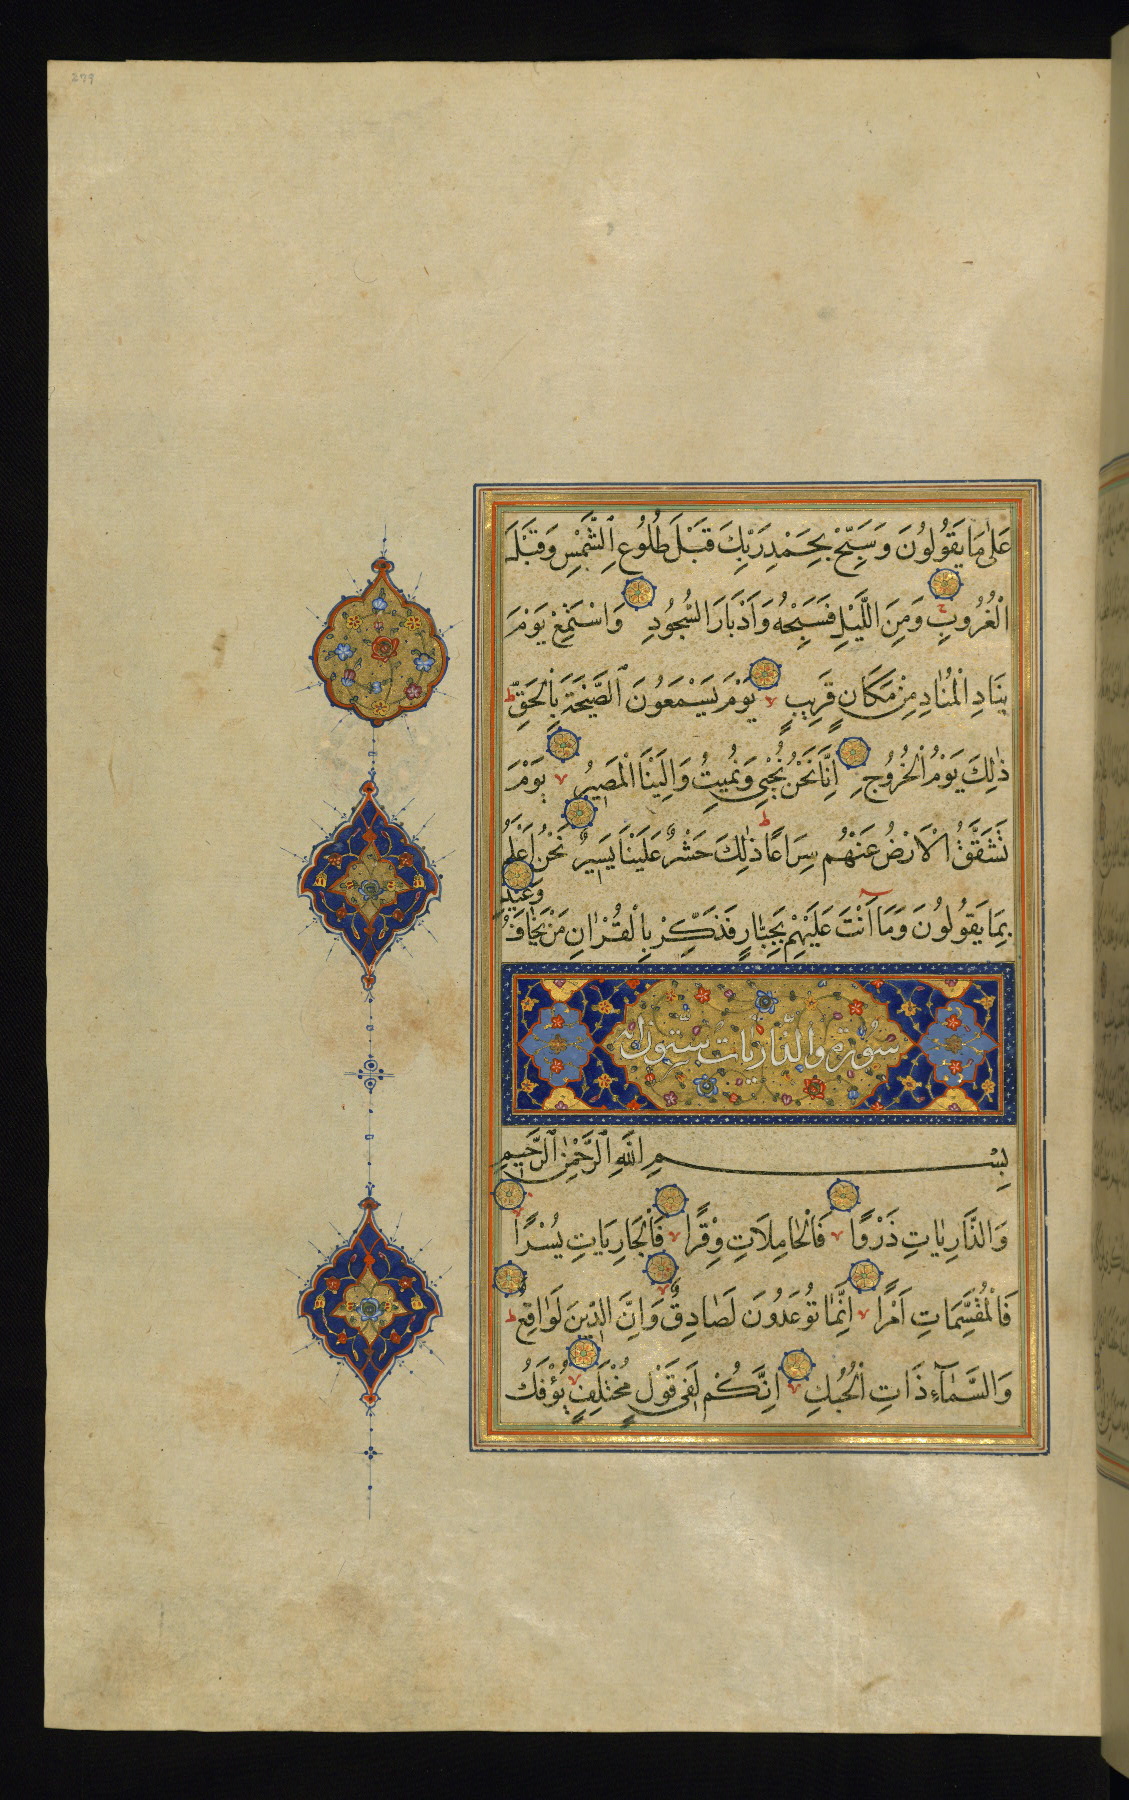 279
عَلٰى مَا يَقُولُونَ وَسَبِّحْ بِحَمْدِ رَبِّكَ قَبْلَ طُلُوعِ الشَّمْسِ وَقَبْلَ
الْغُرُوبِ وَمِنَ اللَّيْلِ فَسَبِّحْهُ وَاَدْبَارَ السُّجُودِ وَاسْتَمِعْ يَوْمَ
يُنَادِ الْمُنَادِ مِنْ مَكَانٍ قَرِيبٍ يَوْمَ يَسْمَعُونَ الصَّيْحَةَ بِالْحَقِّ ط
ذٰلِكَ يَوْمُ الْخُرُوجِ اِنَّا نَحْنُ نُحْيِي وَنُمِيتُ وَاِلَيْنَا الْمَصِيرُ يَوْمَ
تَشَقَّقُ الْاَرْضُ عَنْهُمْ سِرَاعًا ط ذٰلِكَ حَشْرٌ عَلَيْنَا يَسِيرٌ نَحْنُ اَعْلَمُ
بِمَا يَقُولُونَ وَمَا اَنْتَ عَلَيْهِمْ بِجَبَّارٍ فَذَكِّرْ بِالْقُرْاٰنِ مَنْ يَخَافُ وَعِيدِ
سُورَةُ وَالذَّارِيَاتِ سِتُّونَ اٰيَة
بِسْمِ اللّٰهِ الرَّحْمٰنِ الرَّحِيمِ
وَالذَّارِيَاتِ ذَرْوًا فَالْحَامِلَاتِ وِقْرًا فَالْجَارِيَاتِ يُسْرًا
فَالْمُقَسِّمَاتِ اَمْرًا اِنَّمَا تُوعَدُونَ لَصَادِقٌ وَاِنَّ الدِّينَ لَوَاقِعٌ ط
وَالسَّمَآءِ ذَاتِ الْحُبُكِ اِنَّكُمْ لَفِي قَوْلٍ مُخْتَلِفٍ يُؤْفَكُ